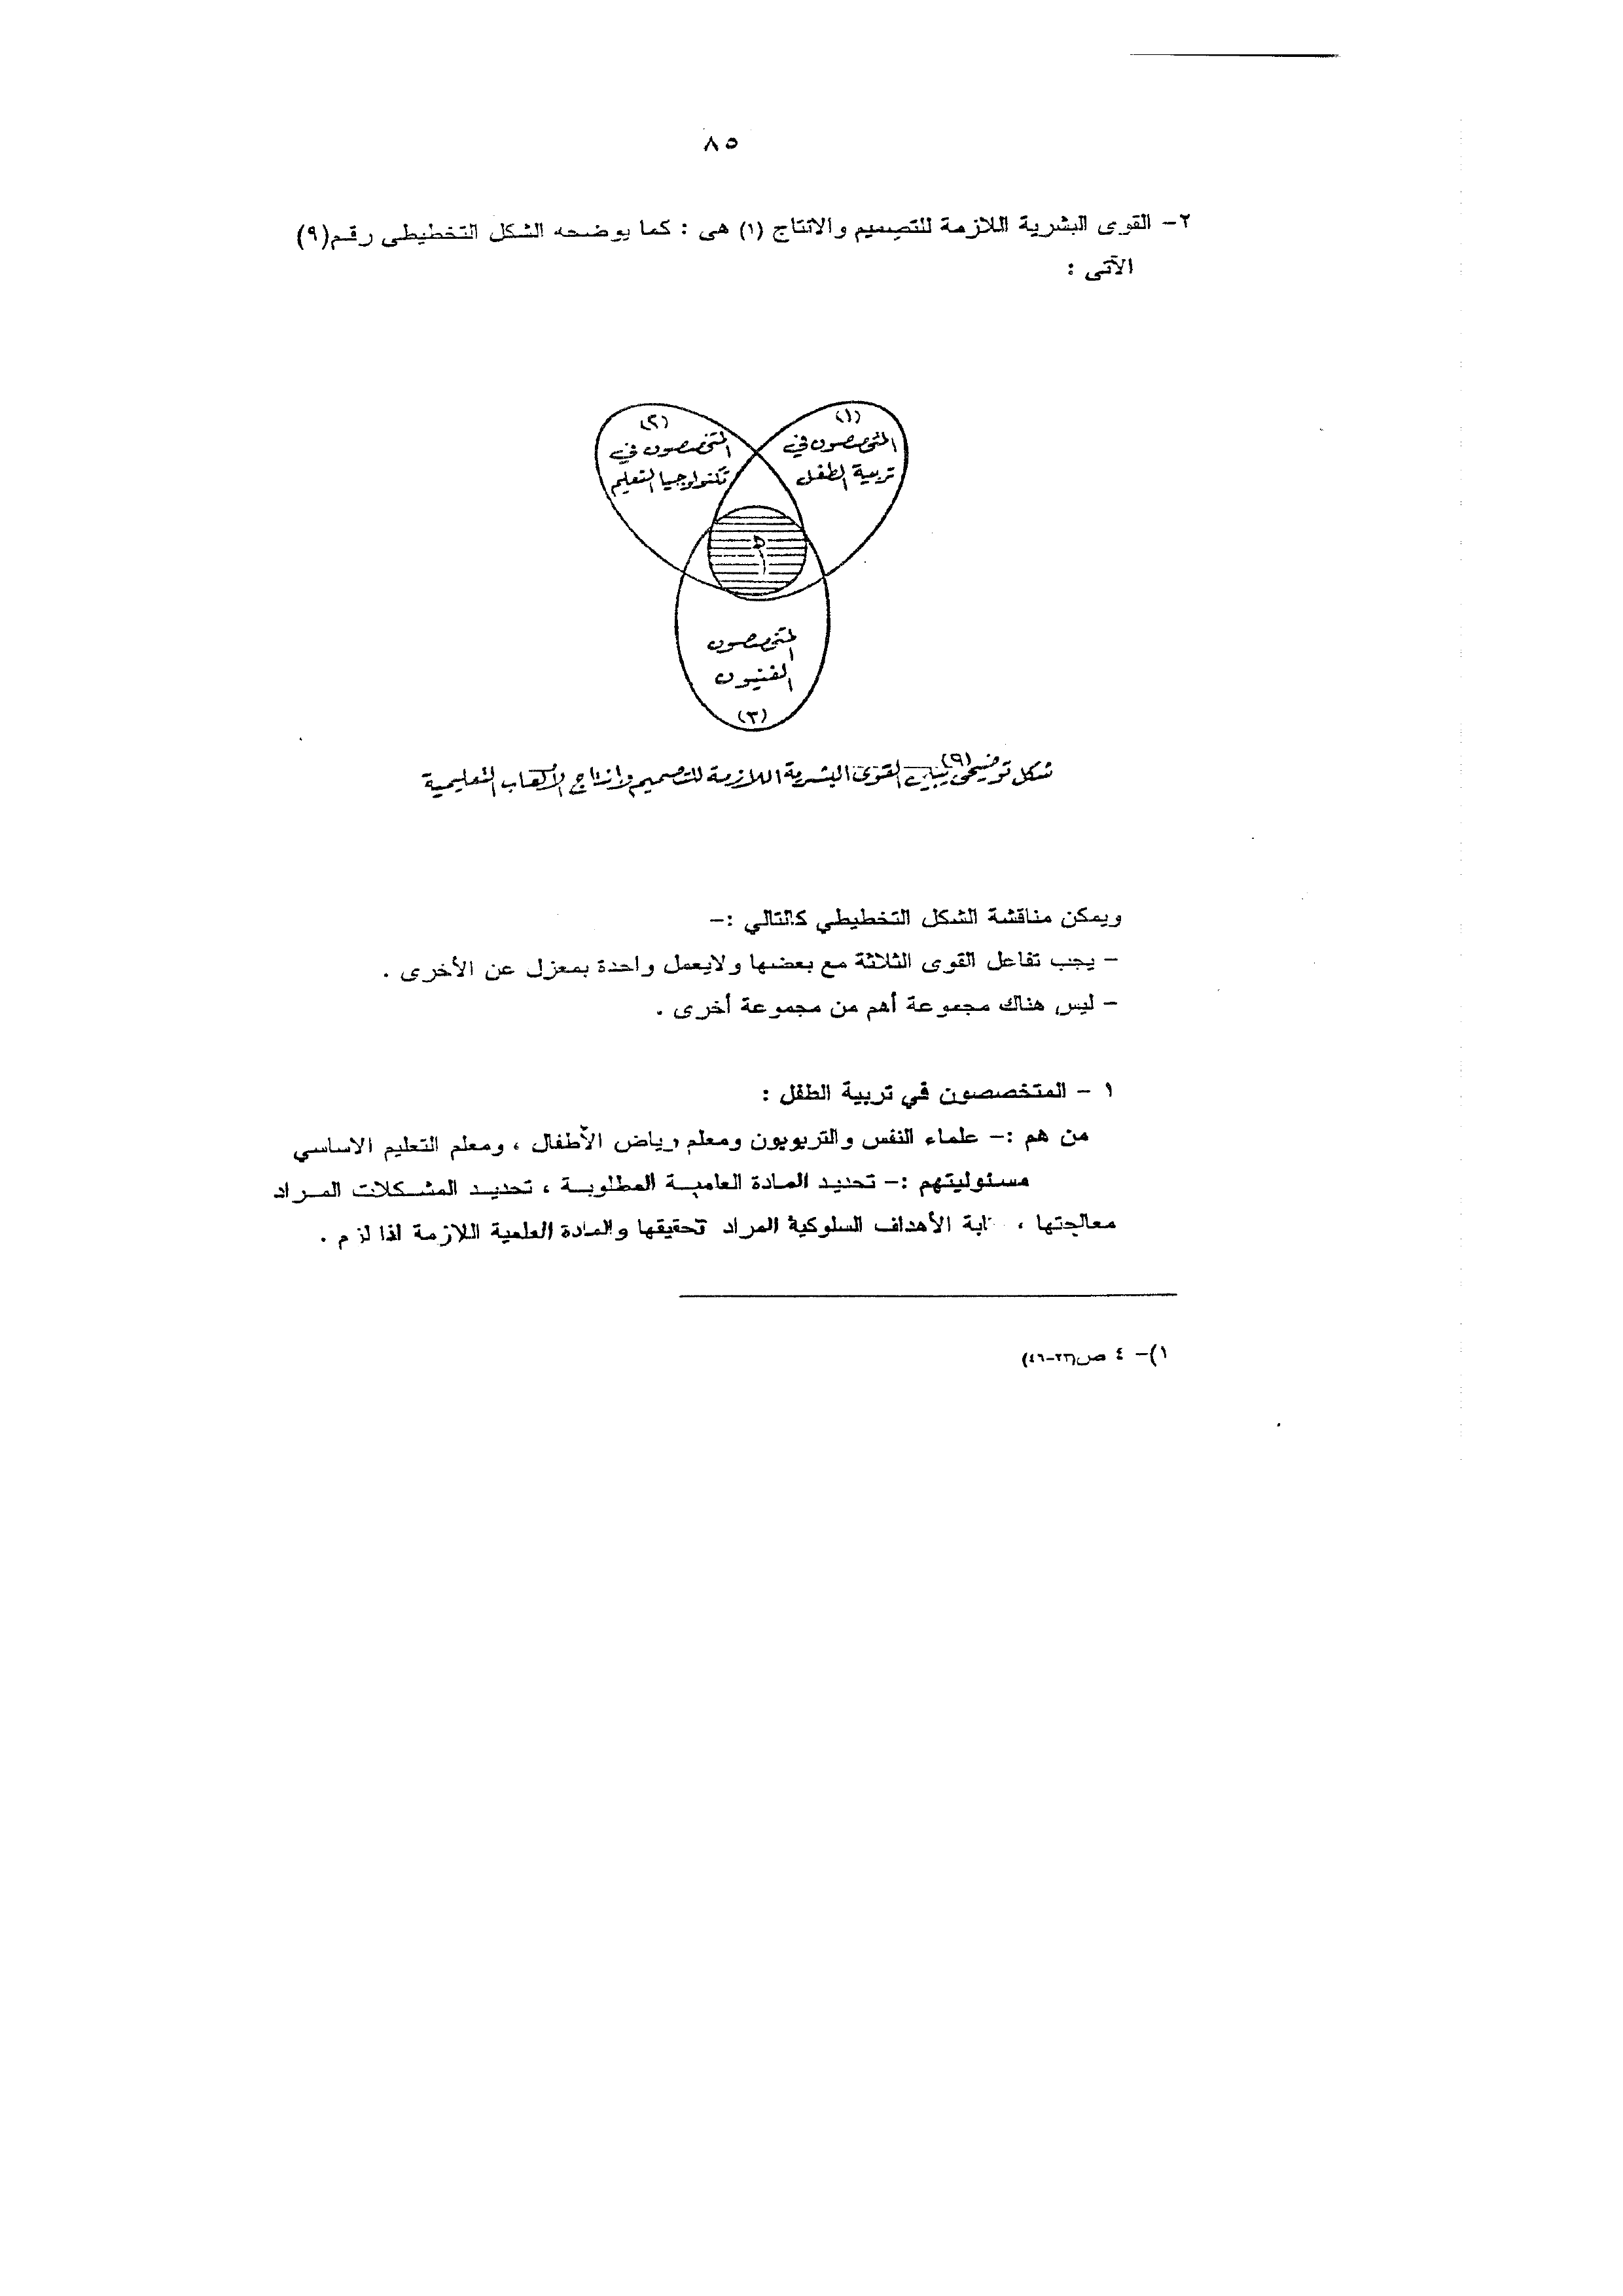 ٨٥
٢- القوى البشرية اللازمة للتصميم والانتاج (١) هى : كما يوضحه الشكل التخطيطى رقم(٩)
الآتى :
(١)
المتخصصون في
تربية الطفل
(٢)
المتخصصون في
تكنولوجيا التعليم
المتخصصون
الفنيون
(٣)
شكل توضيحى (٩) يبين القوى البشرية اللازمة للتصميم وإنتاج الألعاب التعليمية
ويمكن مناقشة الشكل التخطيطي كالتالي :-
- يجب تفاعل القوى الثلاثة مع بعضها ولايعمل واحدة بمعزل عن الأخرى .
- ليس هناك مجموعة أهم من مجموعة أخرى .
١ - المتخصصون في تربية الطفل :
من هم :- علماء النفس والتربويون ومعلم رياض الأطفال ، ومعلم التعليم الاساسي
مسئوليتهم :- تحديد المادة العامية المطلوبة ، تحديد المشكلات المراد
معالجتها ، الأهداف السلوكية المراد تحقيقها والمادة العلمية اللازمة اذا لزم .
١)- ٤ ص(٢٣-٤٦)